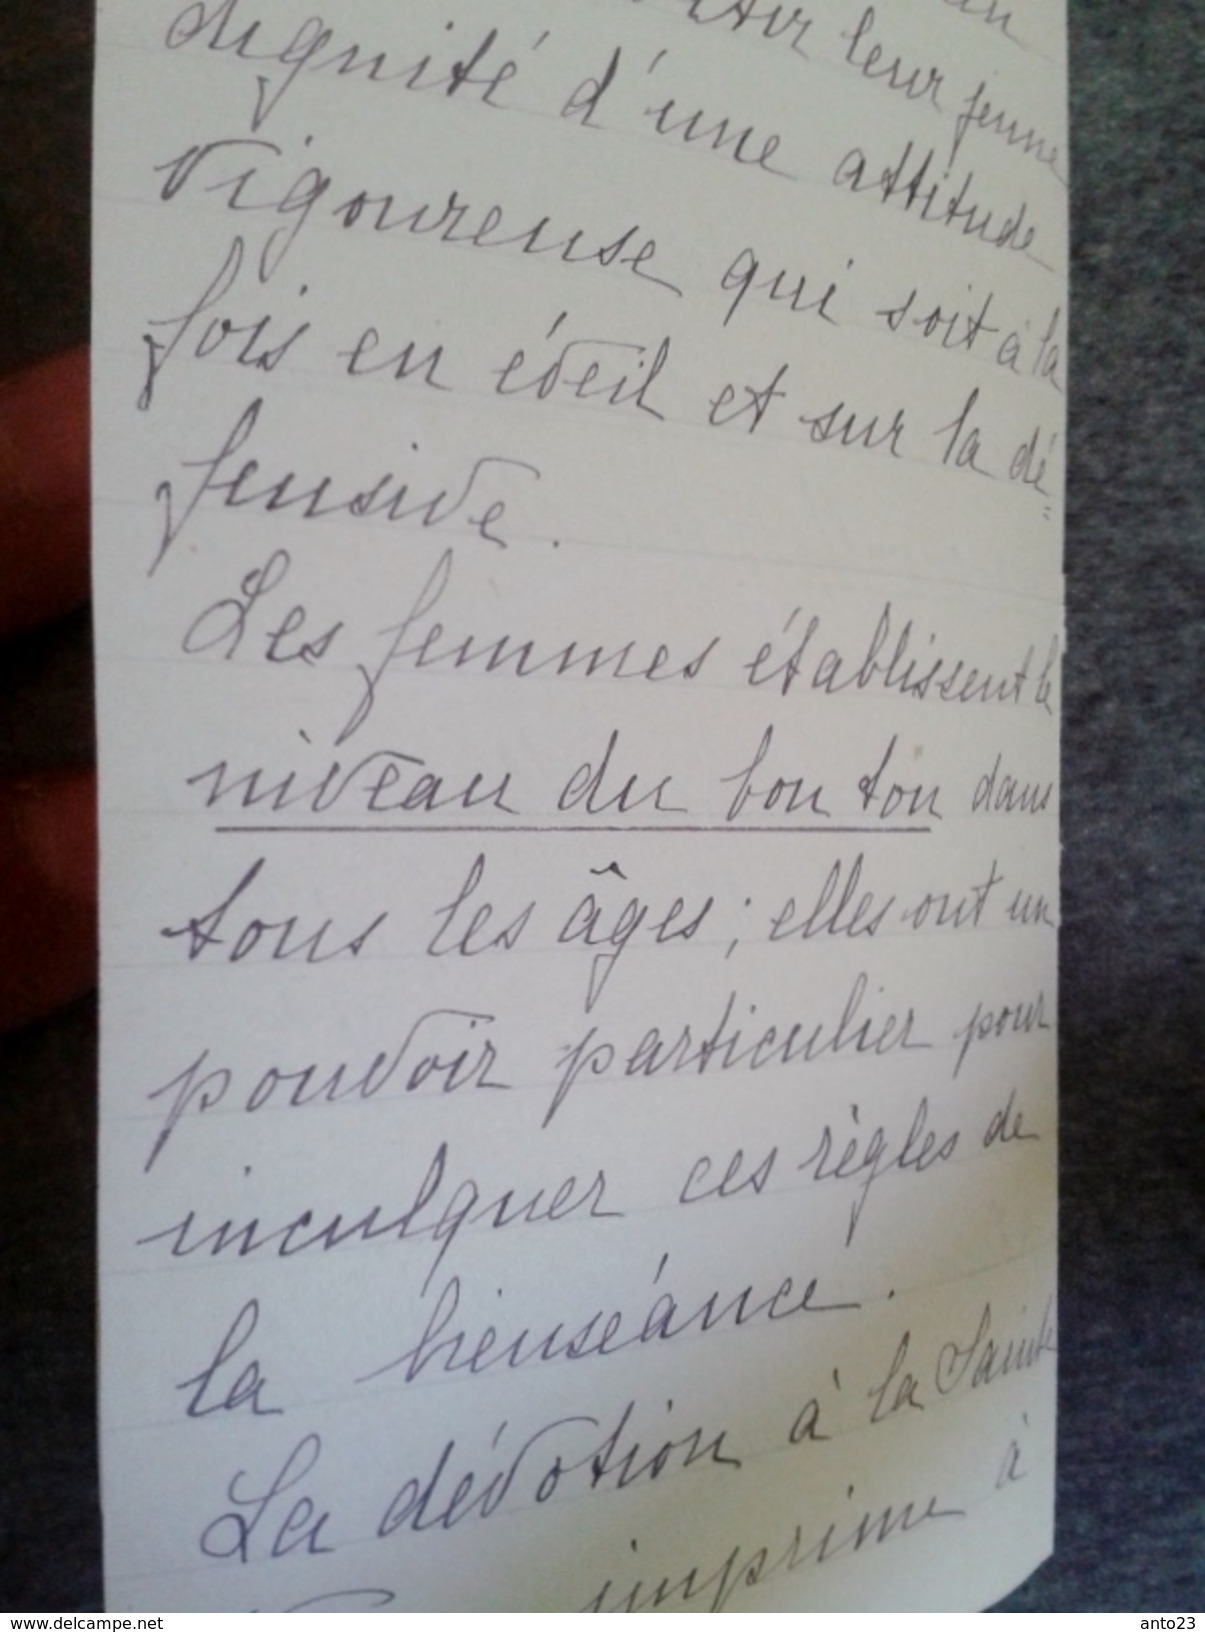 leur jeune
dignité d'une attitude
vigoureuse qui soit à la
fois en éveil et sur la dé=
fensive.
Les femmes établissent le
niveau du bon ton dans
tous les âges; elles ont un
pouvoir particulier pour
inculquer ces règles de
la bienséance.
La dévotion à la Sainte
imprime à
delcampe.net
anto23